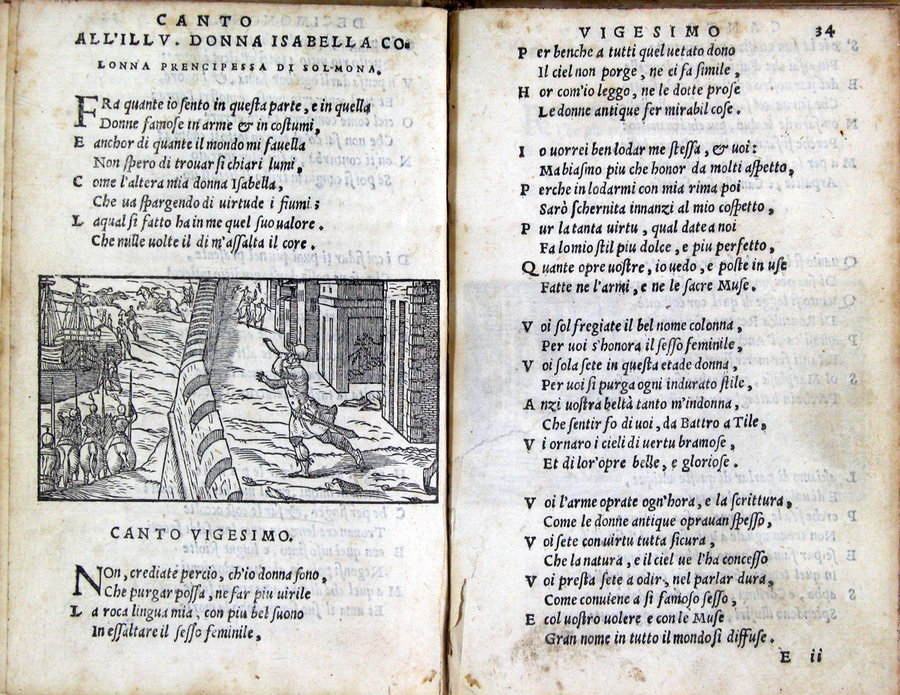 CANTO
ALL'ILLV. DONNA ISABELLA CO-
LONNA PRENCIPESSA DI SOLMONA.
FRa quante io sento in questa parte, e in quella
Donne famose in arme & in costumi,
E anchor di quante il mondo mi favella
Non spero di trovar si chiari lumi,
C ome l'altera mia donna Isabella,
Che va spargendo di virtude i fiumi;
L aqual si fatto ha in me quel suo valore.
Che mille volte il di m'assalta il core.
CANTO VIGESIMO.
NOn, crediate percio, ch'io donna sono,
Che purgar possa, ne far piu virile
L a roca lingua mia, con piu bel suono
In essaltare il sesso feminile,
VIGESIMO 34
P er benche a tutti quel vetato dono
Il ciel non porge, ne ci fa simile,
H or com'io leggo, ne le dotte prose
Le donne antique fer mirabil cose.
I o vorrei ben lodar me stessa, & voi:
Ma biasmo piu che honor da molti aspetto,
P erche in lodarmi con mia rima poi
Sarò schernita innanzi al mio cospetto,
P ur la tanta virtu, qual date a noi
Fa lo mio stil piu dolce, e piu perfetto,
Q uante opre vostre, io vedo, e poste in use
Fatte ne l'armi, e ne le sacre Muse.
V oi sol fregiate il bel nome colonna,
Per voi s'honora il sesso feminile,
V oi sola sete in questa etade donna,
Per voi si purga ogni indurato stile,
A nzi vostra beltà tanto m'indonna,
Che sentir fo di voi, da Battro a Tile,
V i ornaro i cieli di vertu bramose,
Et di lor'opre belle, e gloriose.
V oi l'arme oprate ogn'hora, e la scrittura,
Come le donne antique opravan spesso,
V oi sete con virtu tutta sicura,
Che la natura, e il ciel ve l'ha concesso
V oi presta sete a odir, nel parlar dura,
Come conviene a si famoso sesso,
E col vostro volere e con le Muse
Gran nome in tutto il mondo si diffuse.
E ii